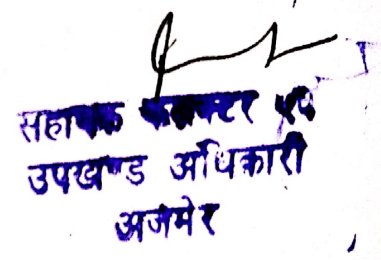 सहायक कलक्टर एवं
उपखण्ड अधिकारी
अजमेर